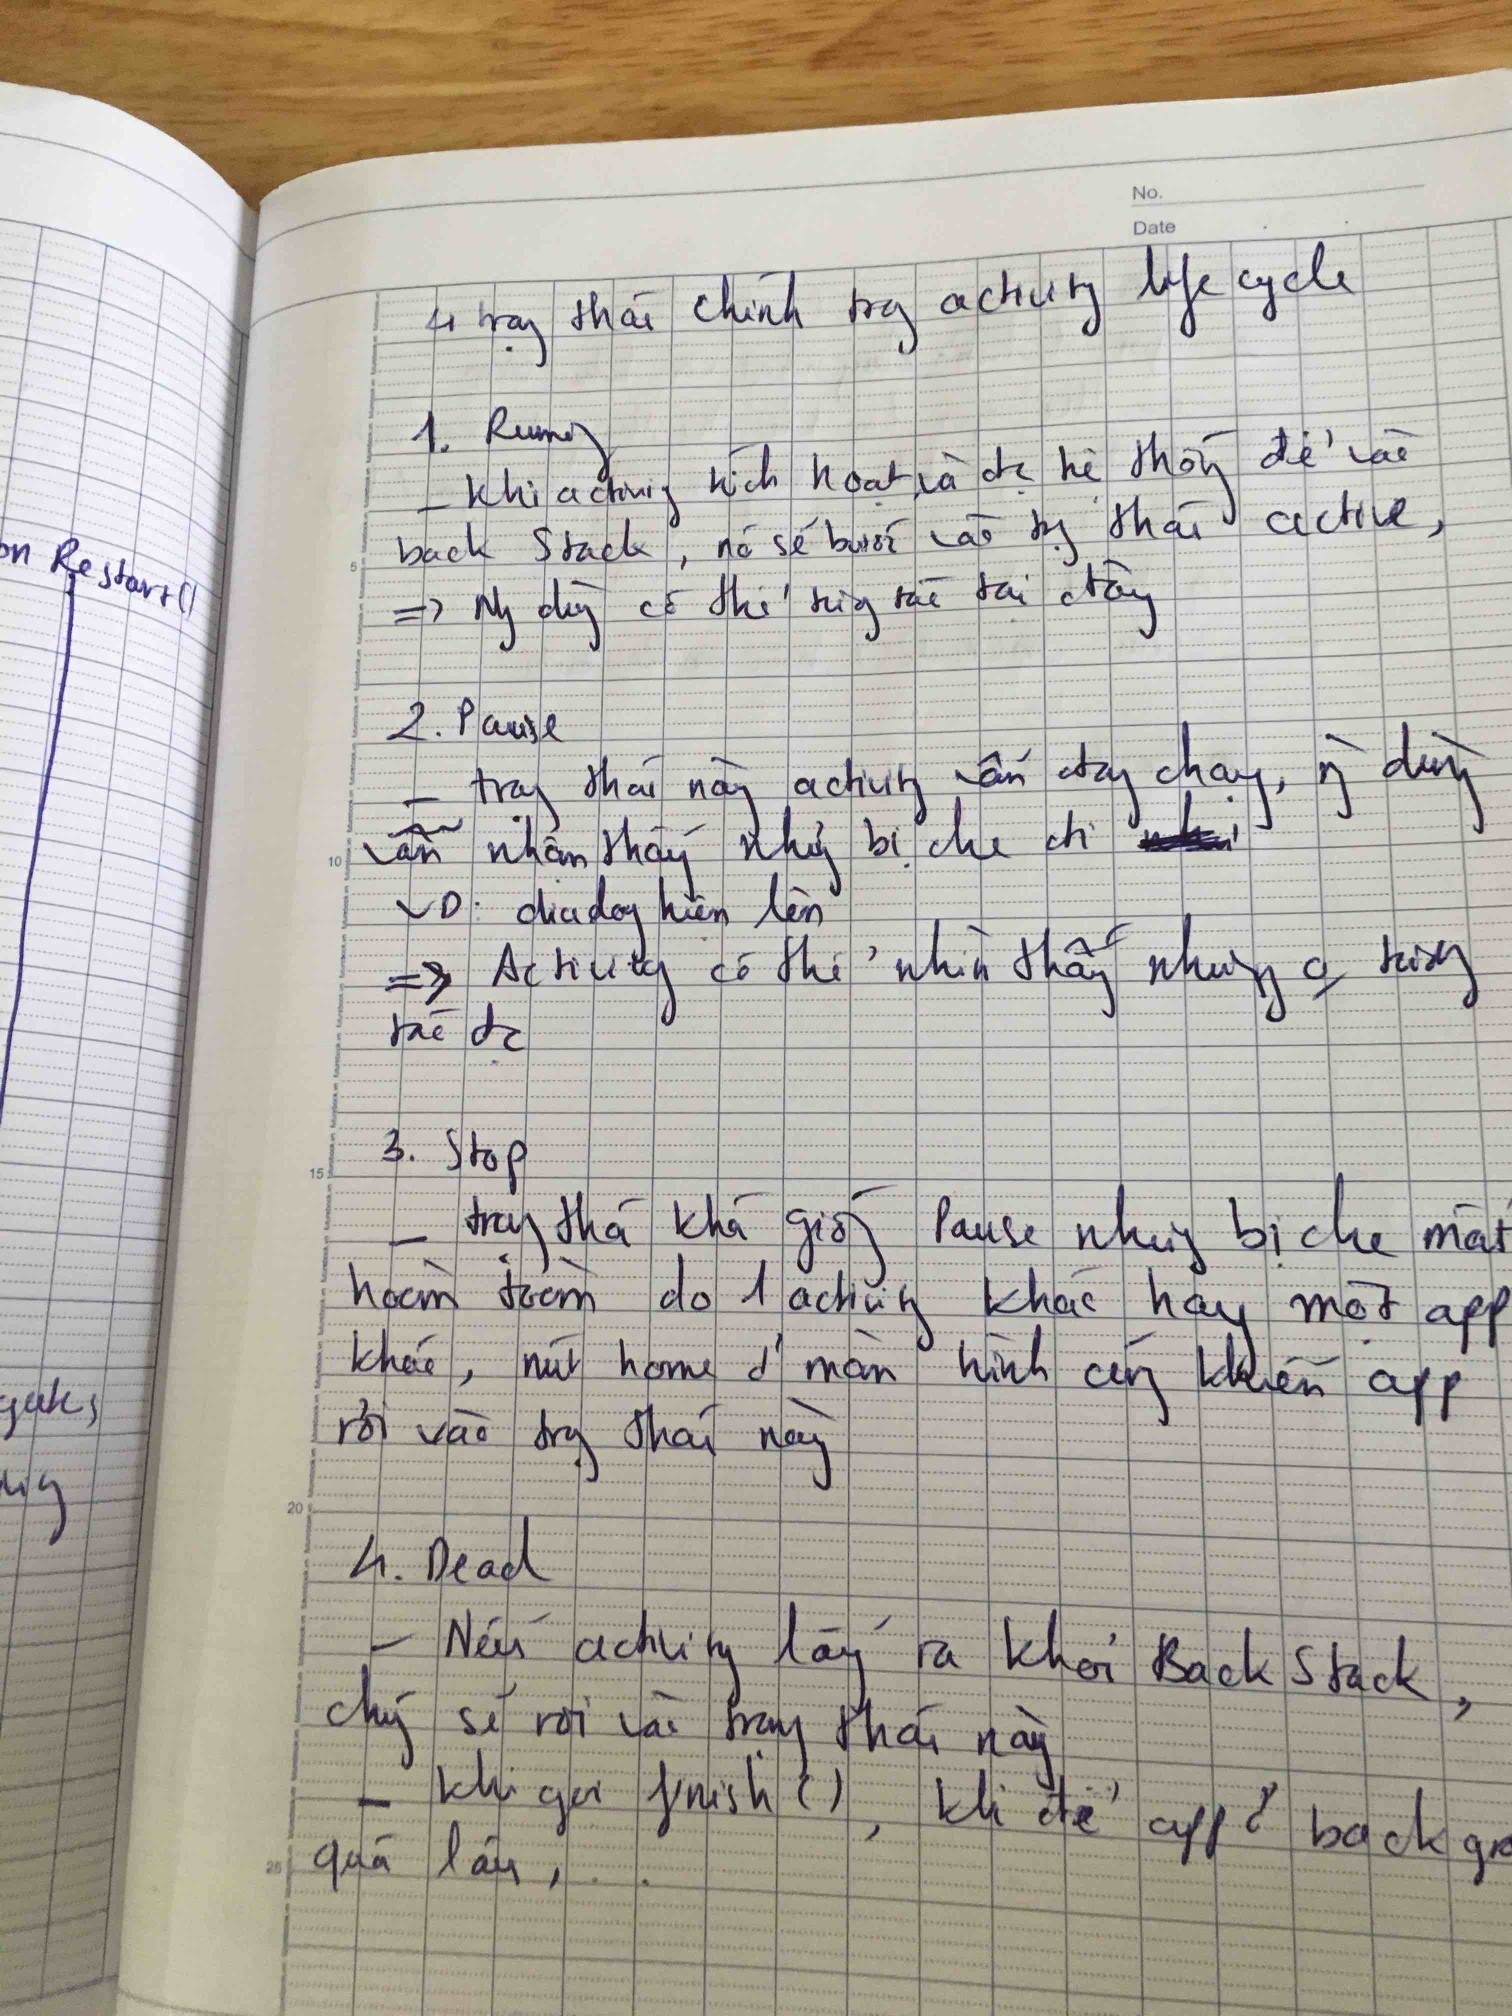 No.
Date
4 trạg thái chính trg activity life cycle
1. Runing
- Khi activity kích hoạt và đc hệ thốg để vào
back Stack, nó sẽ bước vào trg thái active,
=> Ng dùg có thể tương tác tại đây
2. Pause
- trạg thái này activity vẫn đag chạy, ng dùg
vẫn nhận thấy nhưg bị che đi
VD: dialog hiện lên
=> Activity có thể nhìn thấy nhưng o tương
tác đc
3. Stop
- trạg thá khá giốg Pause nhưg bị che mất
hoàn toàn do 1 activity khác hay một app
khác, nút home ở màn hình cũg khiến app
rơi vào trg thái này
4. Dead
- Nếu activity lấy ra khỏi Back Stack,
chúg sẽ rơi vào trạg thái này
- Khi gọi finish(), khi để app ở backgro
quá lâu, ...
on Restart()
5
10
15
20
25